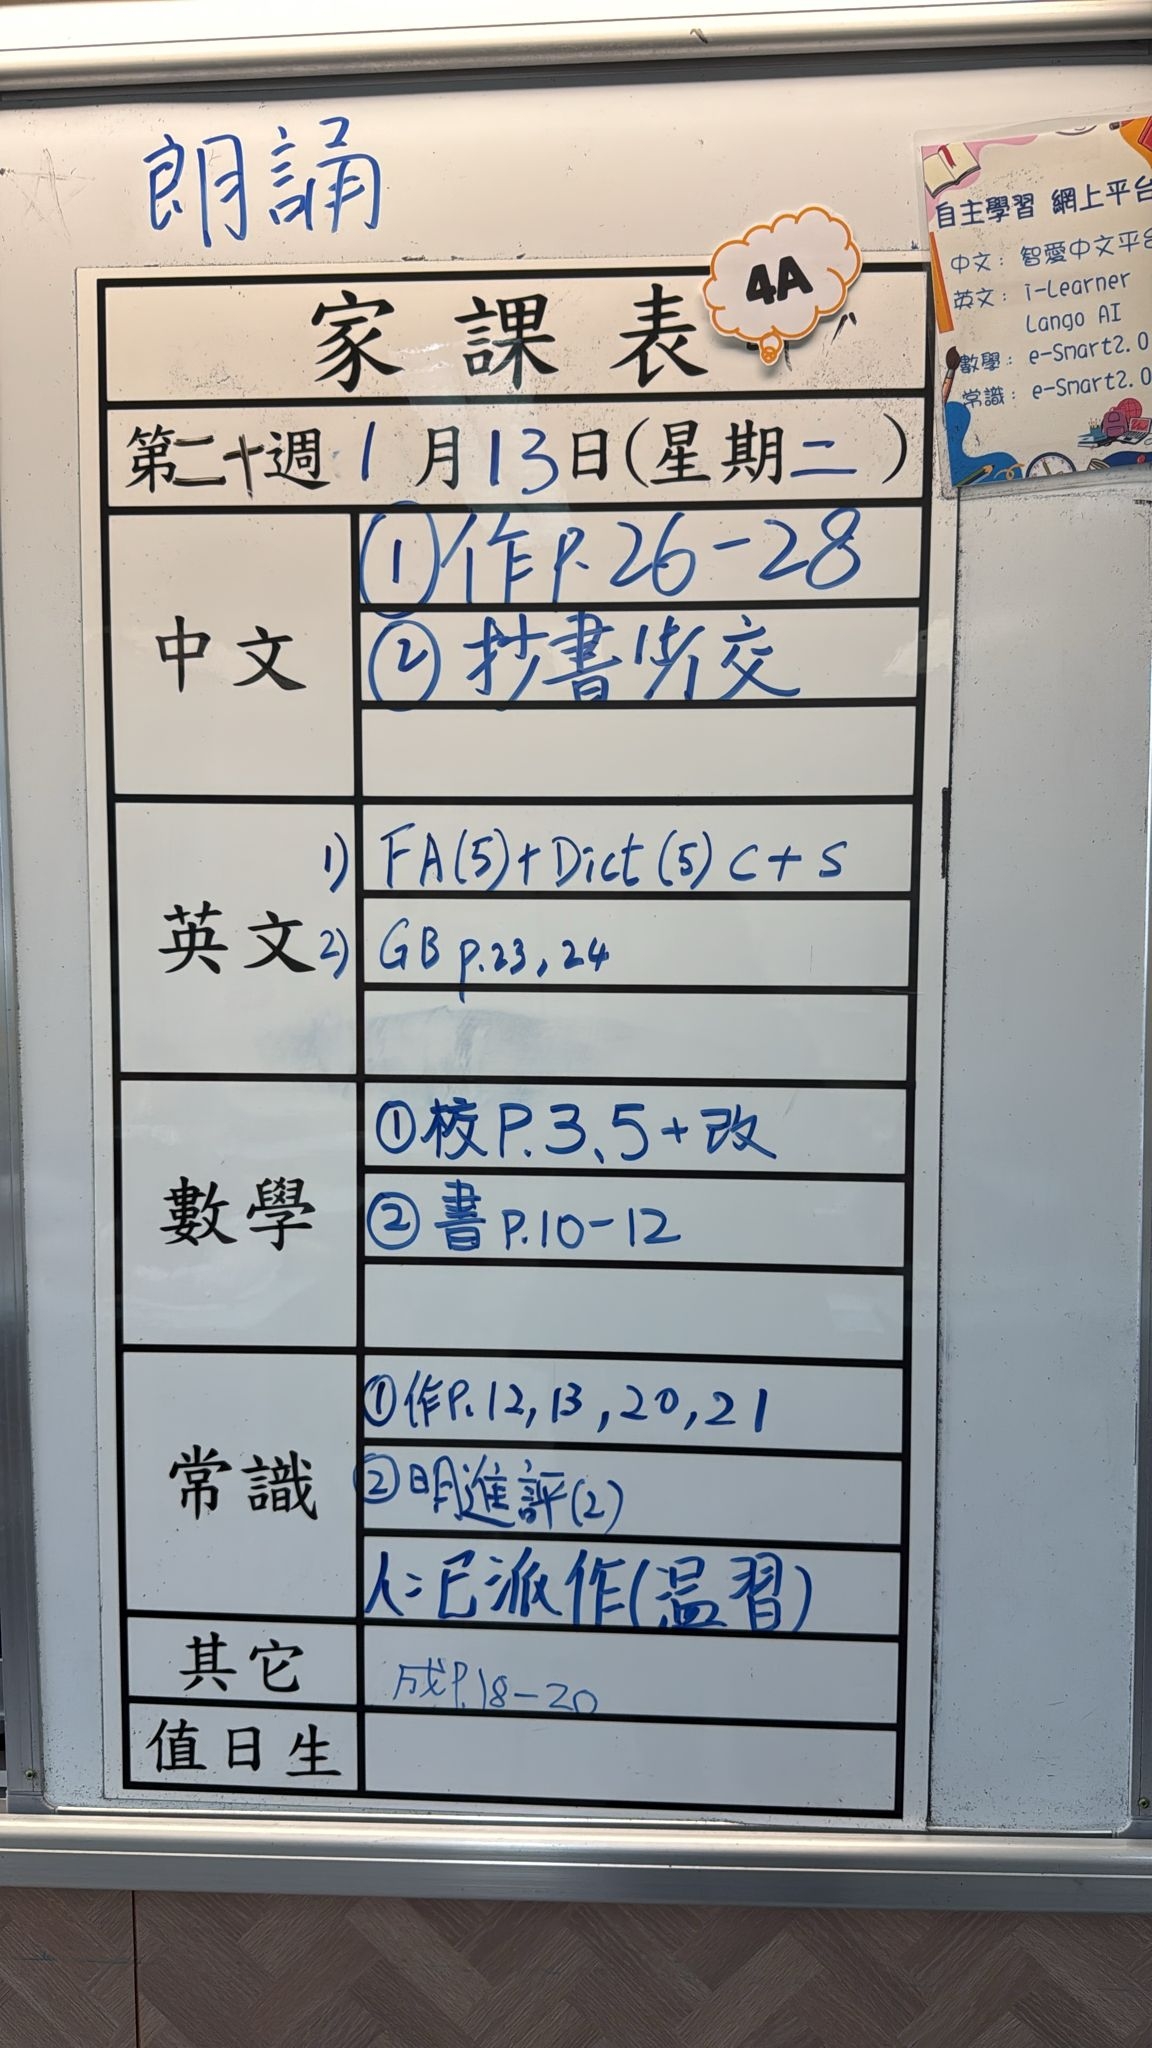 朗誦
自主學習 網上平台
中文：智愛中文平台
英文：i-Learner
Lango AI
數學：e-Smart2.0
常識：e-Smart2.0
4A
家課表
第二十週 1月13日(星期二)
中文
①作P.26-28
②抄書 交
英文
1) FA(5)+Dict(5) C+S
2) GB p.23,24
數學
①校P.3、5+改
②書P.10-12
常識
①作P.12,13,20,21
②明進評(2)
人:已派作(温習)
其它
成P.18-20
值日生